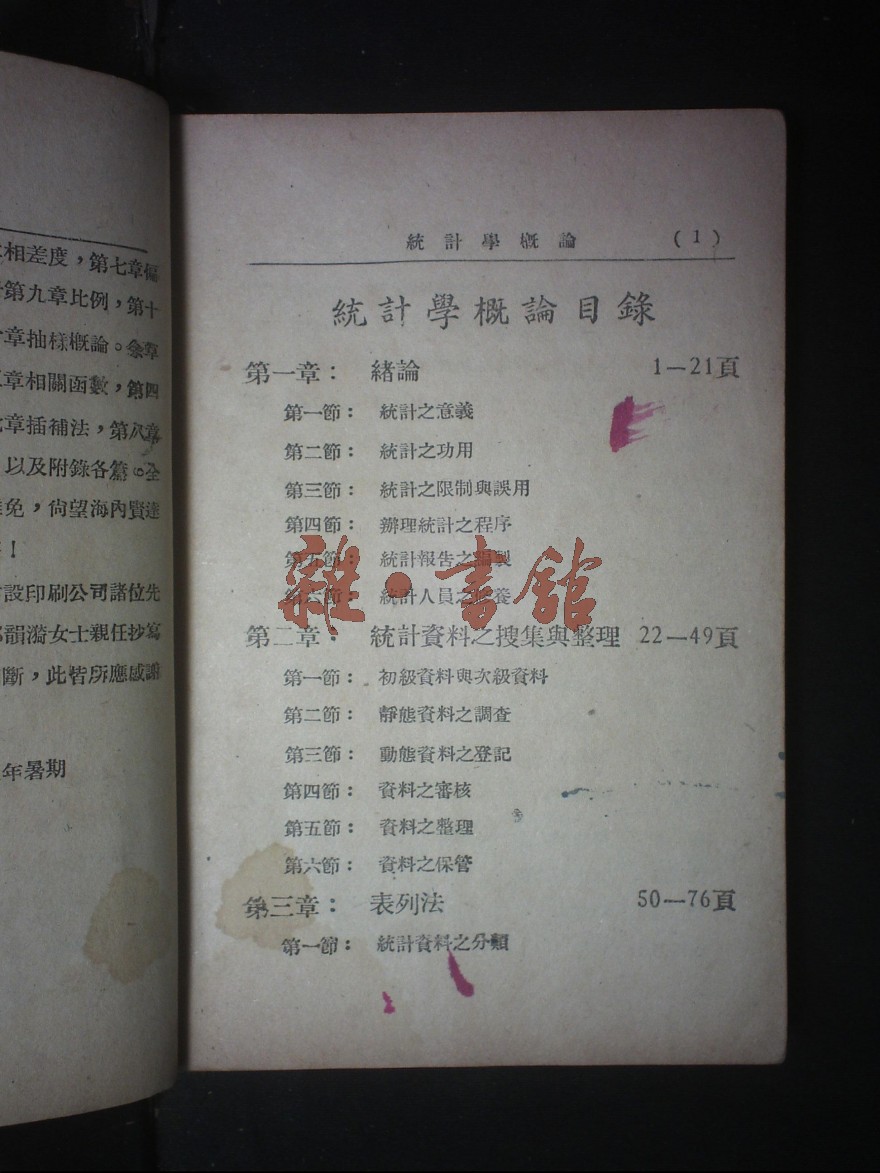 相差度，第七章偏
第九章比例，第十
章抽樣概論。
章相關函數，第四
章插補法，第八章
以及附錄各篇。全
免，尙望海內賢達
！
設印刷公司諸位先
韻漪女士親任抄寫
斷，此皆所應感謝
年暑期
統計學概論 (1)
統計學概論目錄
第一章： 緒論 1—21頁
第一節： 統計之意義
第二節： 統計之功用
第三節： 統計之限制與誤用
第四節： 辦理統計之程序
第五節： 統計報告之編製
第六節： 統計人員之養
雜·書館
第二章： 統計資料之搜集與整理 22—49頁
第一節： 初級資料與次級資料
第二節： 靜態資料之調查
第三節： 動態資料之登記
第四節： 資料之審核
第五節： 資料之整理
第六節： 資料之保管
第三章： 表列法 50—76頁
第一節： 統計資料之分類